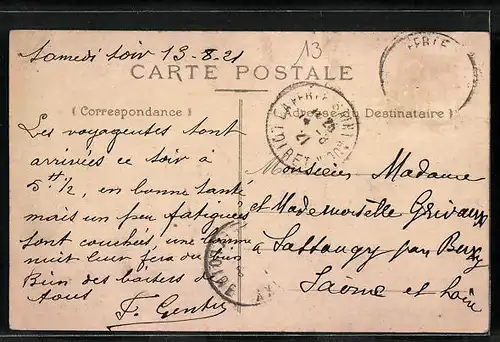 Samedi soir 13-8-21
13
CARTE POSTALE
( Correspondance )
Adresse du Destinataire )
FERTE
LA FERTE ST
LOIRET
LOIRE
Les voyageuses sont
arrivées ce soir à
5 H 1/2, en bonne santé
mais un peu fatiguées
sont couchées, une bonne
nuit leur fera du bien
Bien des baisers à
tous
F. Gentis
Monsieur Madame
et Mademoiselle Grivaux
à Sassangy par Buxy
Saone et Loire